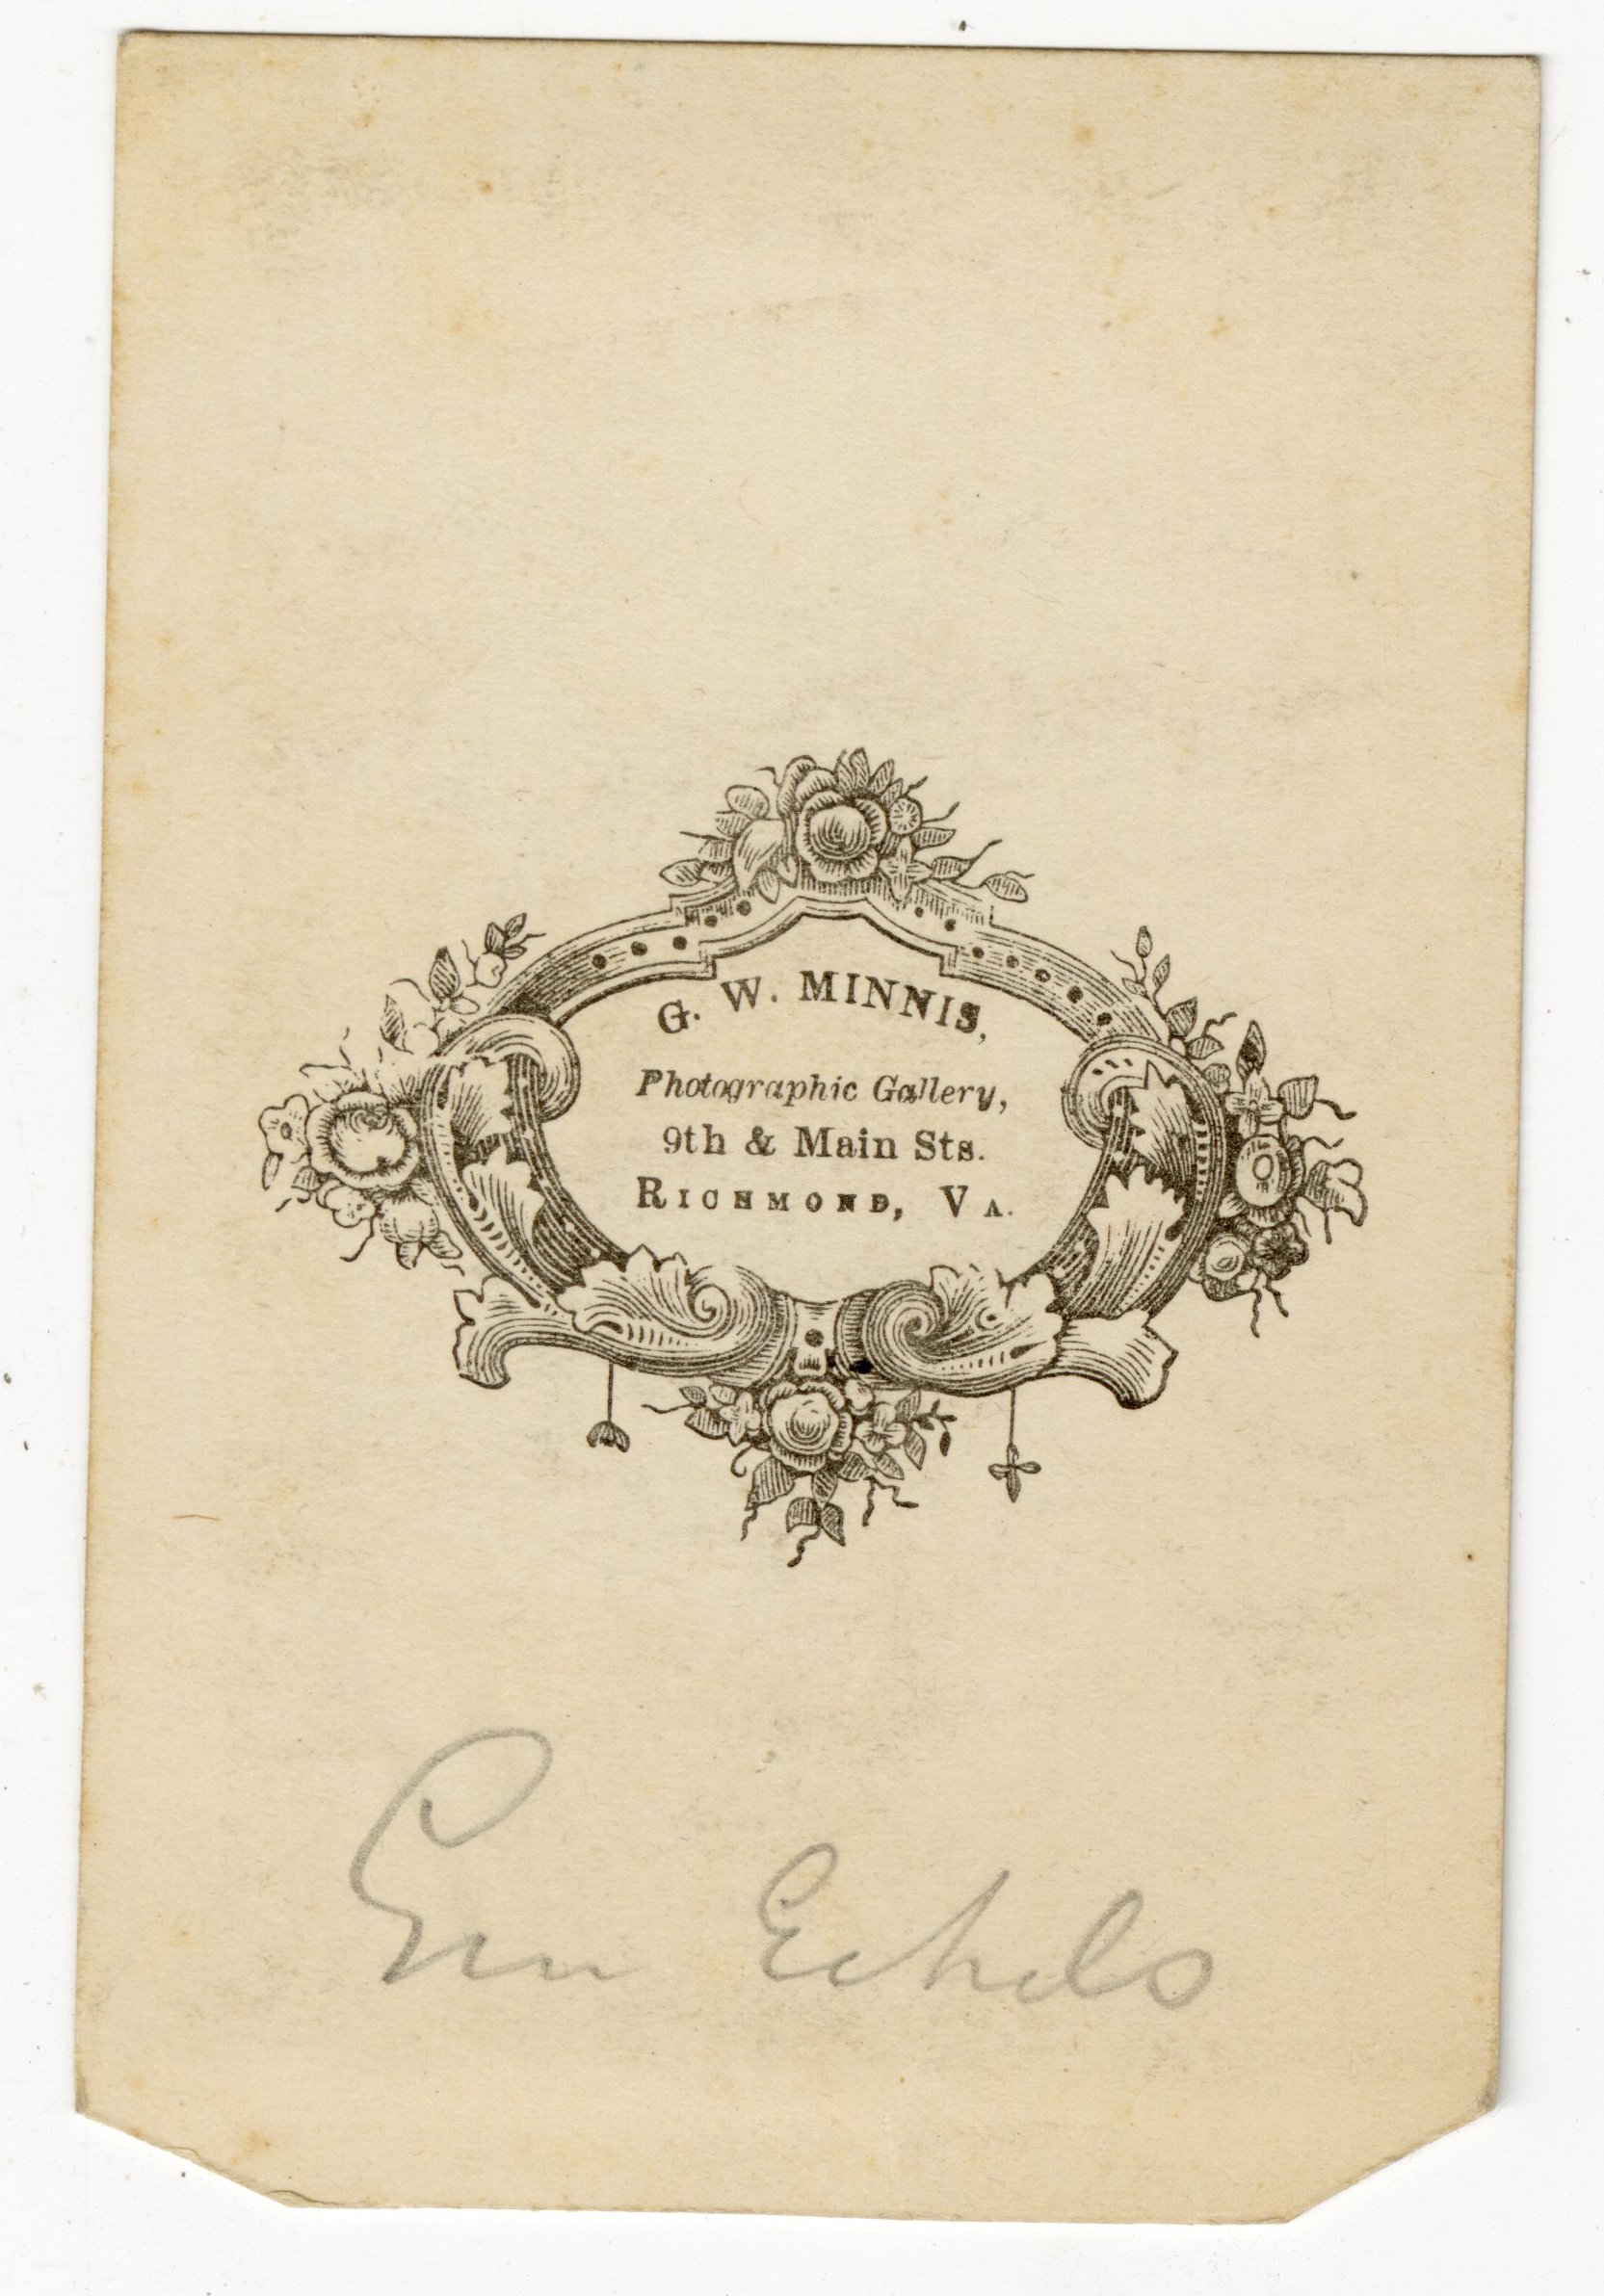 G. W. MINNIS,
Photographic Gallery,
9th & Main Sts.
RICHMOND, VA.
Gen Echols